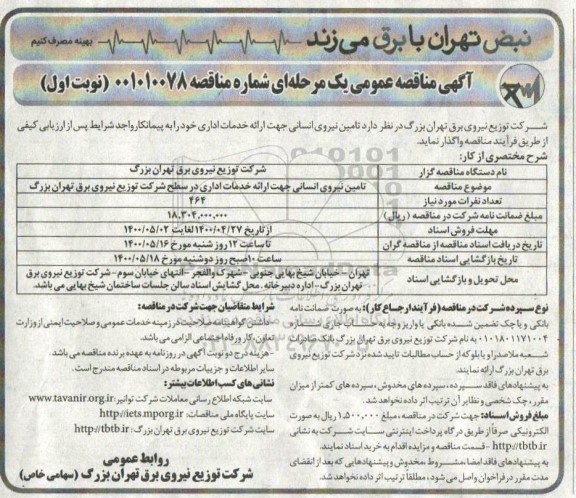 نبض تهران با برق می‌زند
بهینه مصرف کنیم
آگهی مناقصه عمومی یک مرحله‌ای شماره مناقصه ۰۰۱۰۱۰۰۷۸ (نوبت اول)
شرکت توزیع نیروی برق تهران بزرگ در نظر دارد تامین نیروی انسانی جهت ارائه خدمات اداری خود را به پیمانکار واجد شرایط پس از ارزیابی کیفی
از طریق فرآیند مناقصه واگذار نماید.
شرح مختصری از کار:
نام دستگاه مناقصه گزار شرکت توزیع نیروی برق تهران بزرگ
موضوع مناقصه تامین نیروی انسانی جهت ارائه خدمات اداری در سطح شرکت توزیع نیروی برق تهران بزرگ
تعداد نفرات مورد نیاز ۴۶۴
مبلغ ضمانت نامه شرکت در مناقصه (ریال) ۱۸,۳۰۴,۰۰۰,۰۰۰
مهلت فروش اسناد از تاریخ ۱۴۰۰/۰۴/۲۷ لغایت ۱۴۰۰/۰۵/۰۲
تاریخ دریافت اسناد مناقصه از مناقصه گران تا ساعت ۱۲ روز شنبه مورخ ۱۴۰۰/۰۵/۱۶
تاریخ بازگشایی اسناد مناقصه ساعت ۱۰ صبح روز دوشنبه مورخ ۱۴۰۰/۰۵/۱۸
محل تحویل و بازگشایی اسناد تهران - خیابان شیخ بهایی جنوبی - شهرک والفجر - انتهای خیابان سوم - شرکت توزیع نیروی برق
تهران بزرگ - اداره دبیرخانه. محل گشایش اسناد سالن جلسات ساختمان شیخ بهایی می باشد.
نوع سپرده شرکت در مناقصه (فرآیند ارجاع کار): به صورت ضمانت نامه
بانکی و یا چک تضمین شده بانکی یا واریز وجه به حساب جاری سپهر به شماره
۰۱۰۱۸۰۱۱۷۱۰۰۴ به نام شرکت توزیع نیروی برق تهران بزرگ بانک صادرات
شعبه ملاصدرا و یا بلوکه از حساب مطالبات تایید شده نزد شرکت توزیع نیروی
برق تهران بزرگ ارائه نمایند.
به پیشنهادهای فاقد سپرده، سپرده های مخدوش، سپرده های کمتر از میزان
مقرر، چک شخصی و نظایر آن ترتیب اثر داده نخواهد شد.
مبلغ فروش اسناد: جهت شرکت در مناقصه، مبلغ ۱,۵۰۰,۰۰۰ ریال به صورت
الکترونیکی صرفاً از طریق درگاه پرداخت اینترنتی سایت شرکت به نشانی
http://tbtb.ir - قسمت مناقصه و مزایده اقدام به خرید اسناد نمایند.
به پیشنهادهای فاقد امضا، مشروط، مخدوش و پیشنهادهایی که بعد از انقضای
مدت مقرر در فراخوان واصل می شود، مطلقاً ترتیب اثر داده نخواهد شد.
شرایط متقاضیان جهت شرکت در مناقصه:
- داشتن گواهینامه صلاحیت در زمینه خدمات عمومی و صلاحیت ایمنی از وزارت
تعاون، کار و رفاه اجتماعی الزامی می باشد.
- هزینه درج دو نوبت آگهی در روزنامه به عهده برنده مناقصه می باشد.
سایر اطلاعات و جزییات مربوطه در اسناد مناقصه مندرج است.
نشانی های کسب اطلاعات بیشتر:
سایت شبکه اطلاع رسانی معاملات شرکت توانیر: www.tavanir.org.ir
سایت پایگاه ملی مناقصات: http://iets.mporg.ir
سایت شرکت توزیع نیروی برق تهران بزرگ: http://tbtb.ir
روابط عمومی
شرکت توزیع نیروی برق تهران بزرگ (سهامی خاص)